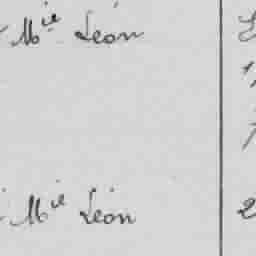 Mie Léon
Mie Léon
2